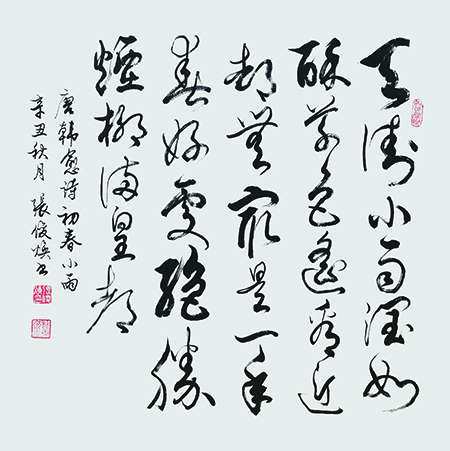 天街小雨潤如
酥草色遙看近
却無最是一年
春好處絕勝
煙柳滿皇都
唐韓愈詩初春小雨
辛丑秋月 張俊煥书